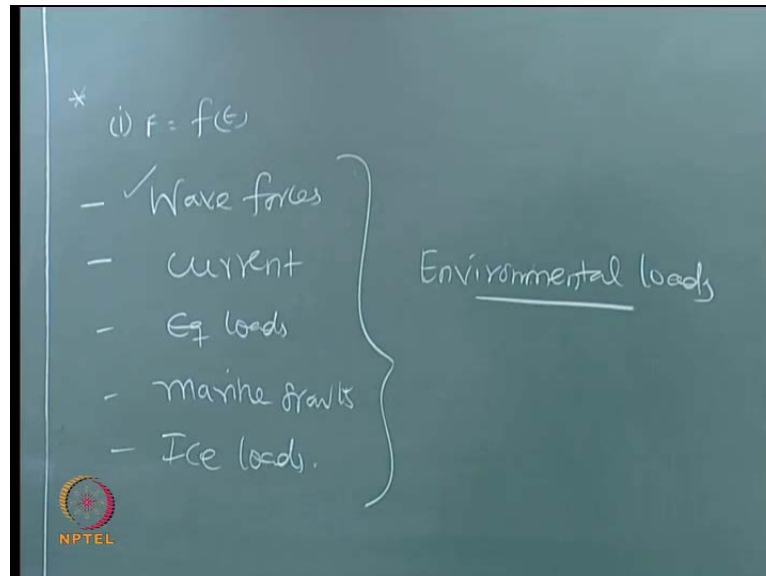 *
(i) F = f(t)
- ✓ Wave forces
- current
- Eq loads
- marine growth
- Ice loads.
Environmental loads
NPTEL